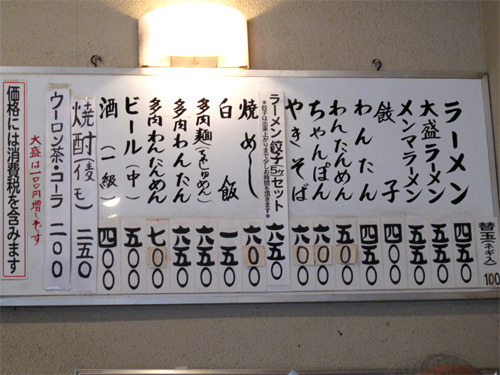 替玉(ネギ入) 100
ラーメン 四五〇
大盛ラーメン 五五〇
メンマラーメン 五〇〇
餃子 四〇〇
わんたん 四五〇
わんたんめん 五〇〇
ちゃんぽん 六〇〇
やきそば 六〇〇
ラーメン餃子5ヶセット 六五〇
焼めし 六〇〇
白飯 一五〇
多肉麺 六五〇
多肉わんたん 六五〇
多肉わんたんめん 七〇〇
ビール(中) 五〇〇
酒(一級) 四〇〇
焼酎 二五〇
ウーロン茶・コーラ 二〇〇
大盛は一〇〇円増しです
価格には消費税を含みます